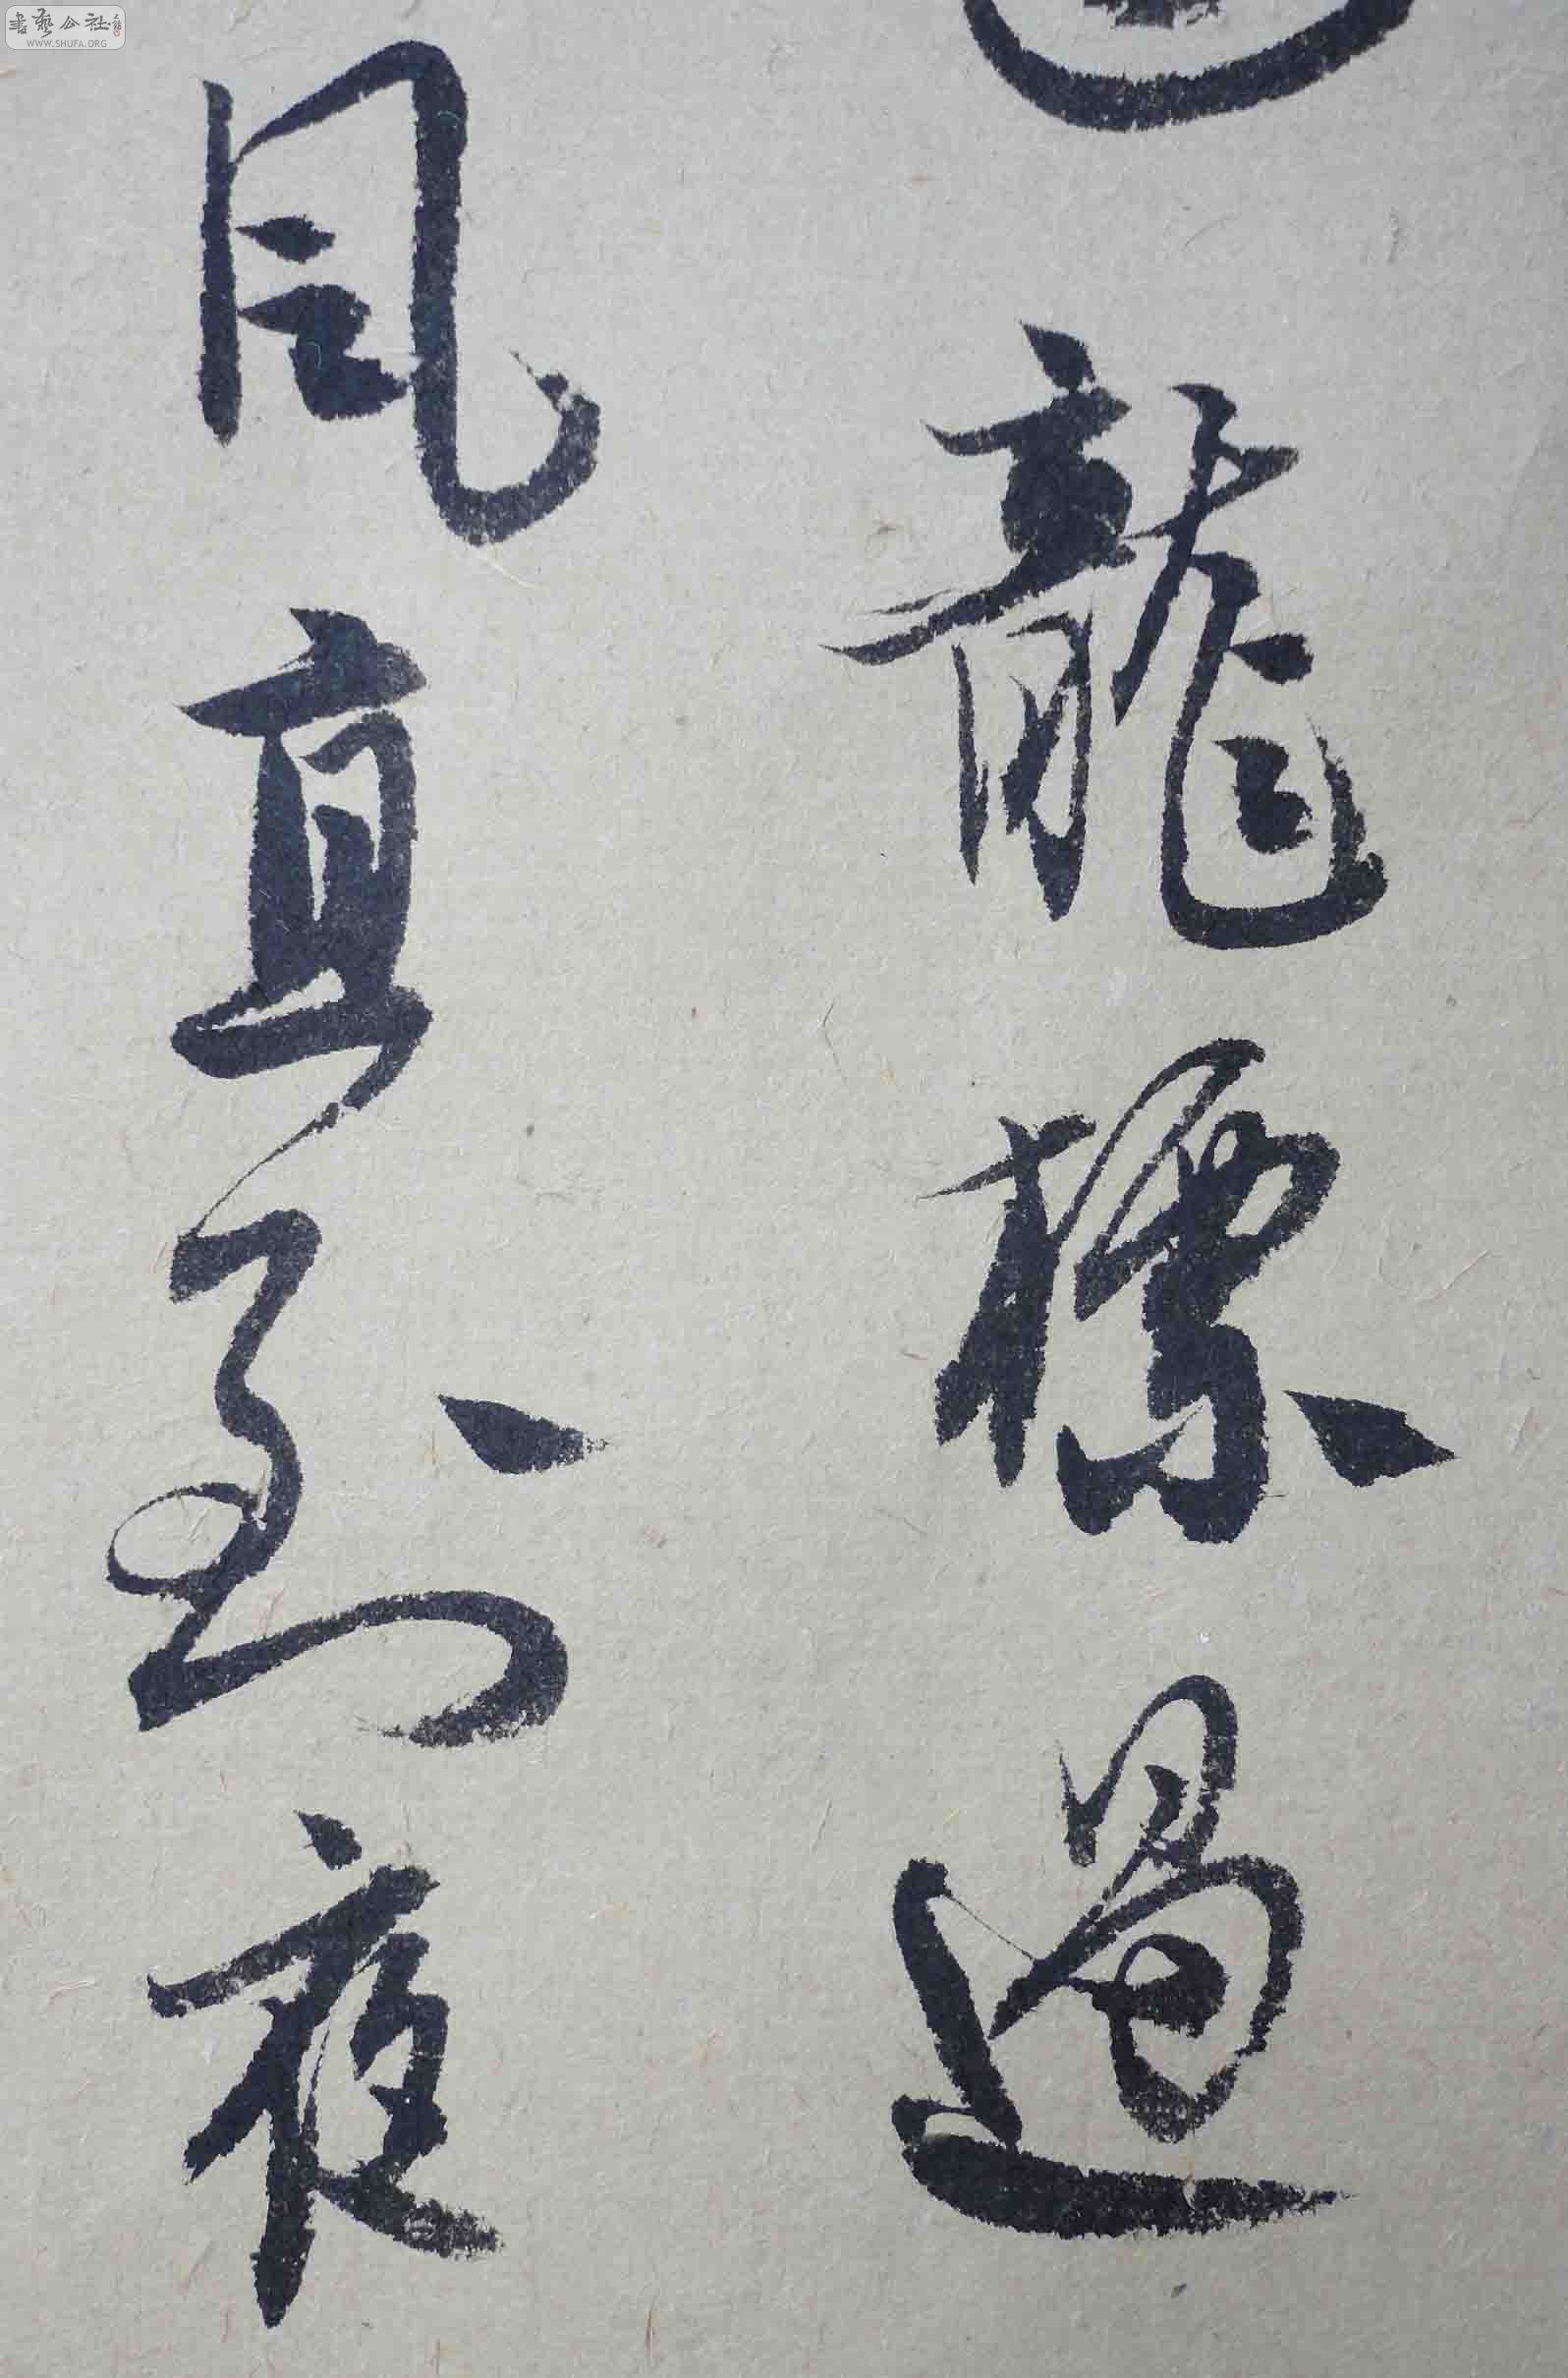 書藝公社
WWW.SHUFA.ORG
龍標過
風直到夜